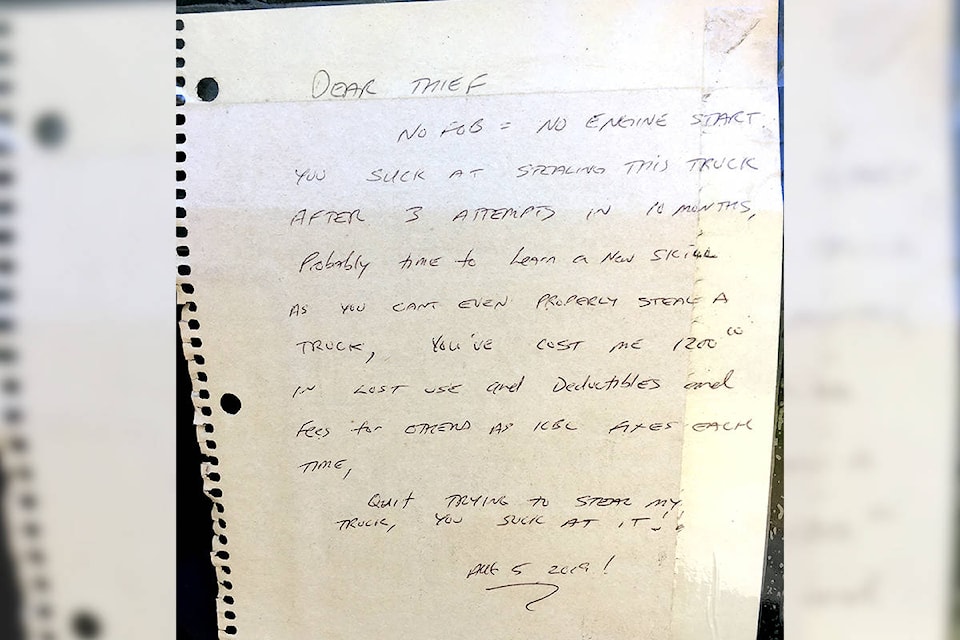 DEAR THIEF
NO FOB = NO ENGINE START
YOU SUCK AT STEALING THIS TRUCK
AFTER 3 ATTEMPTS IN 10 MONTHS,
Probably time to Learn a New SKILL
AS YOU CANT EVEN PROPERLY STEAL A
TRUCK, YOU'VE COST ME 1200 00
IN LOST USE and Deductibles and
Fees for AS ICBC FIXES EACH
TIME,
Quit TRYING TO STEAL MY
TRUCK, YOU SUCK AT IT!!
AUG 5 2019!